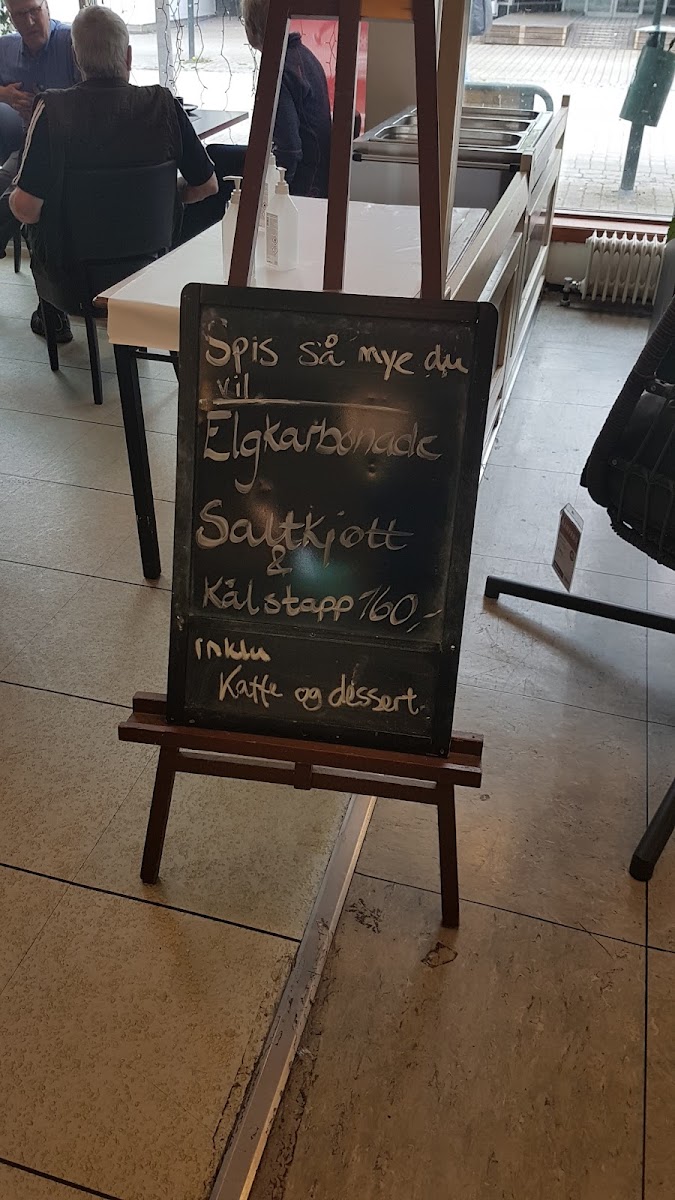 Spis så mye du
vil
Elgkarbonade
Saltkjøtt
&
Kålstapp 160,-
inklu
Kaffe og dessert.